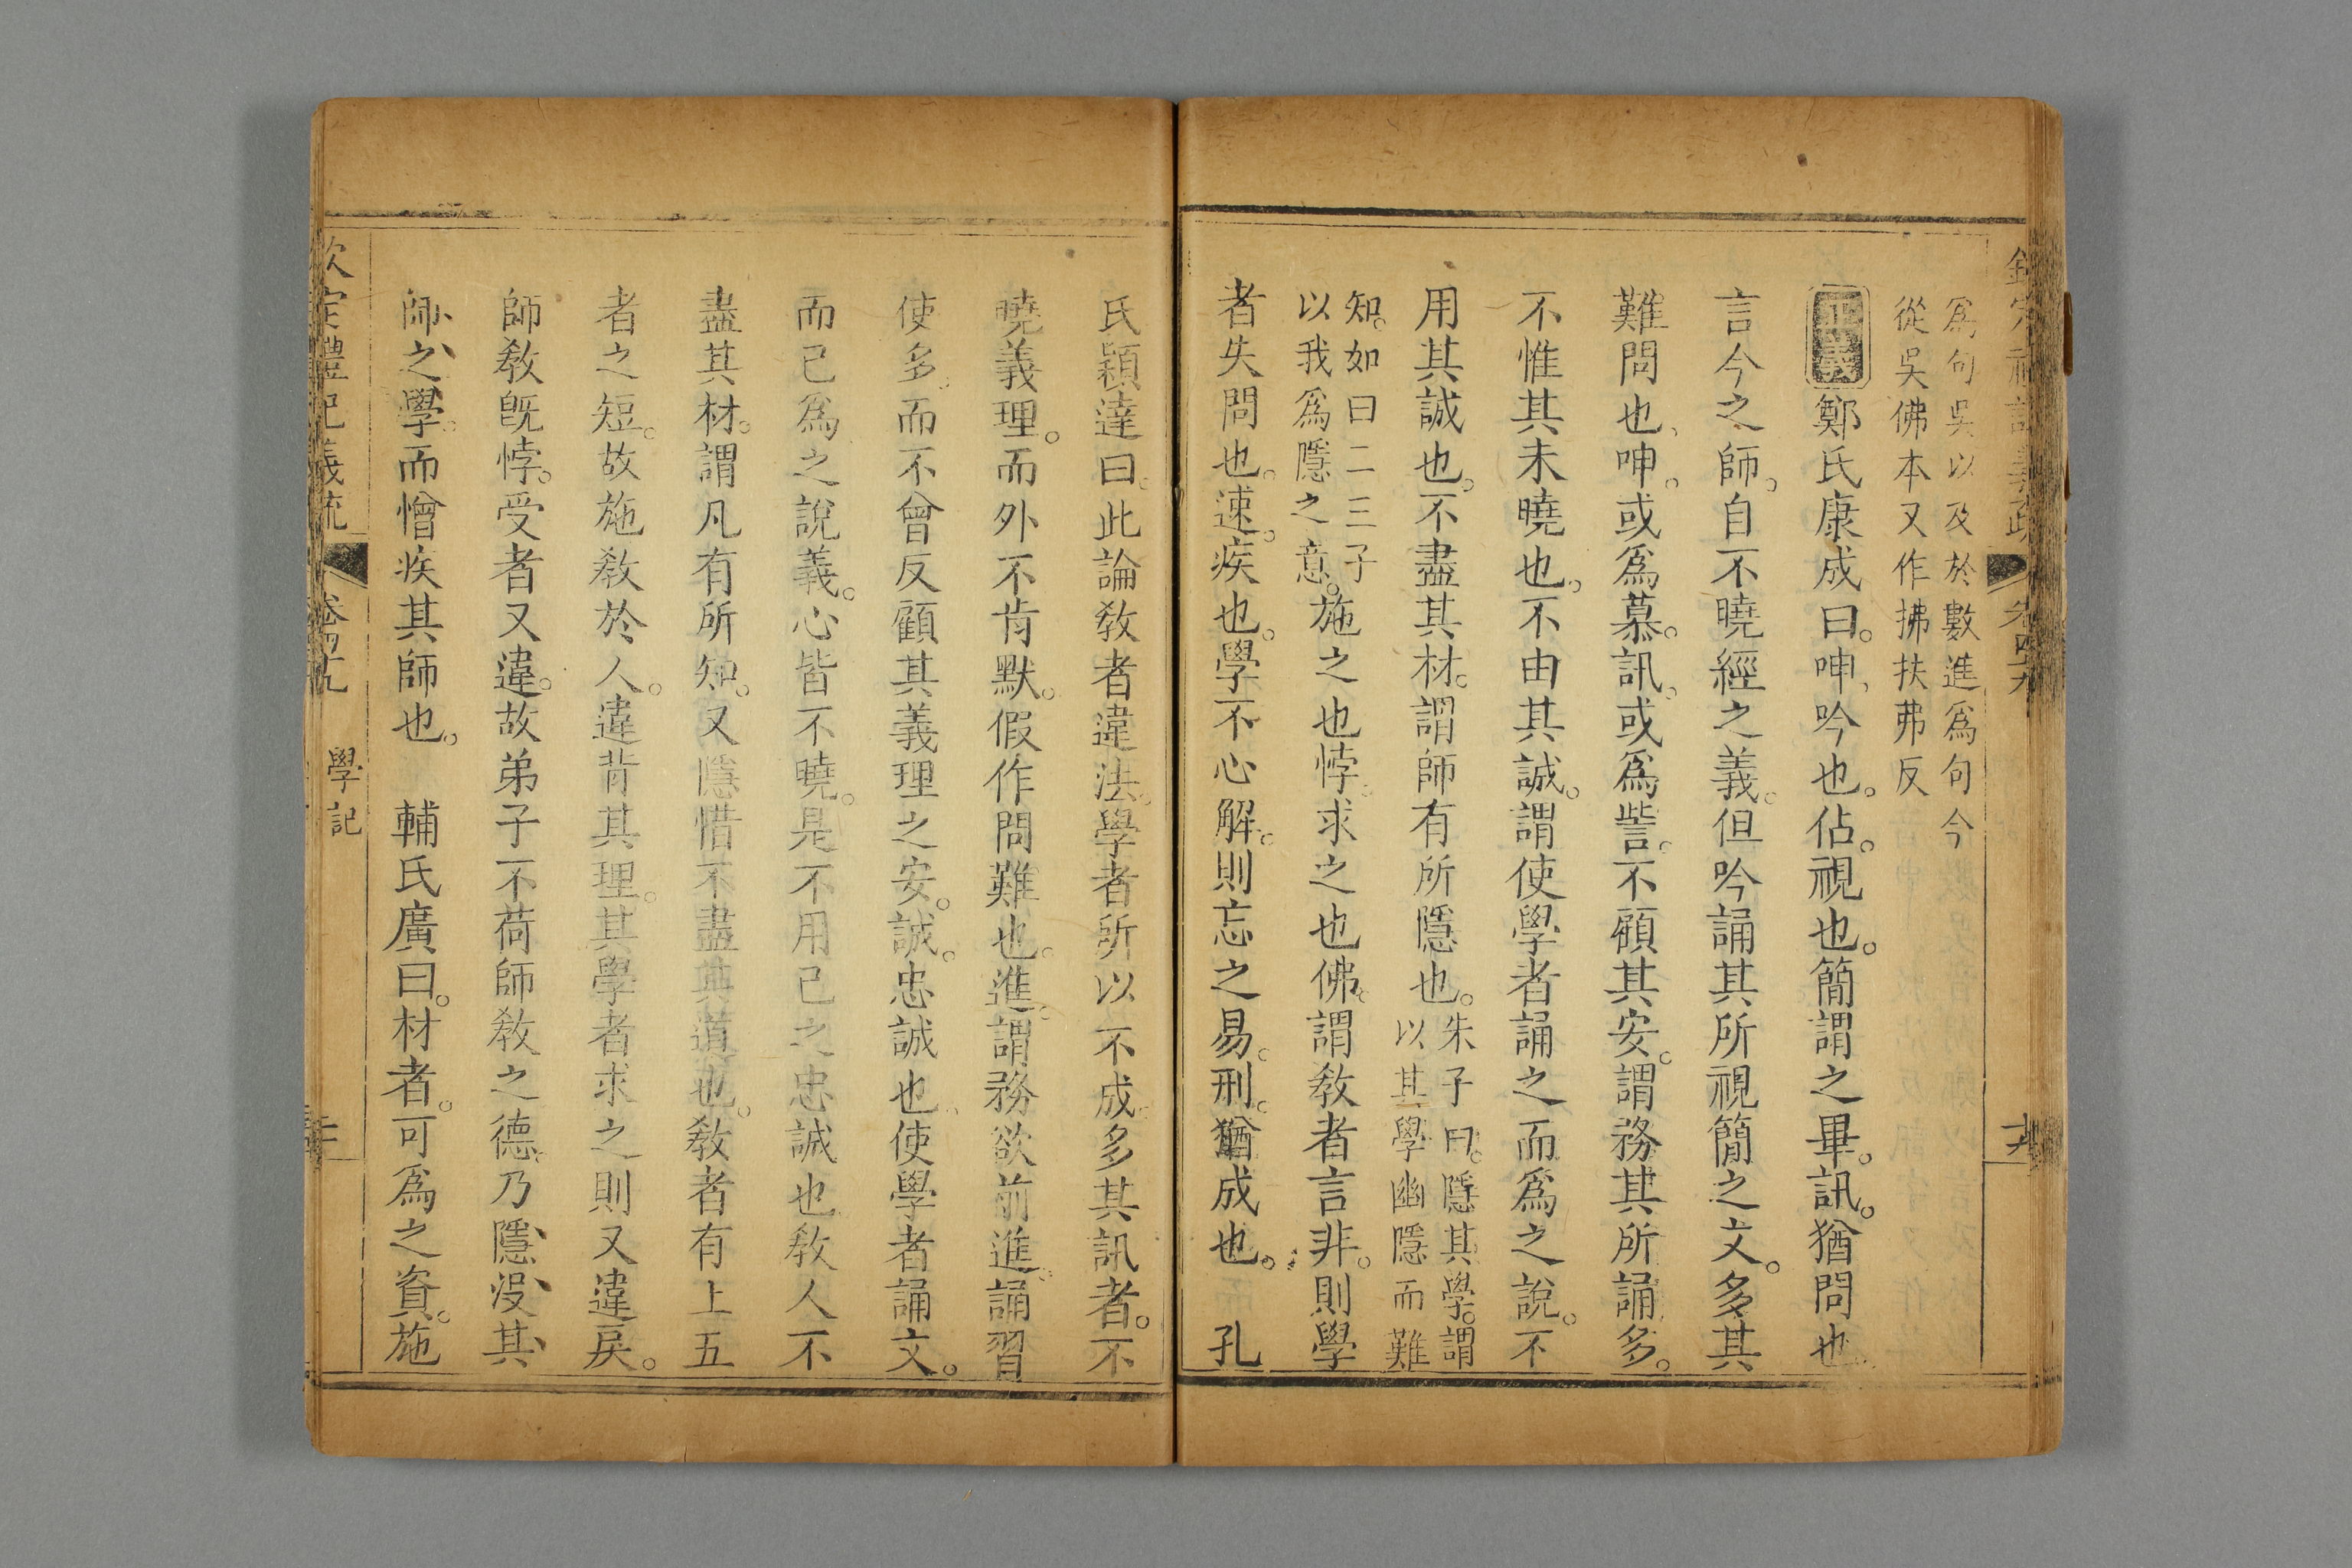 爲句吳以及於數進爲句今
從吳佛本又作拂扶弗反
正義鄭氏康成曰。呻、吟也。佔。視也。簡謂之畢。訊。猶問也
言今之師。自不曉經之義。但吟誦其所視簡之文。多其
難問也、呻。或爲慕。訊、或爲訾。不顧其安。謂務其所誦多。
不惟其未曉也。不由其誠。謂使學者誦之而爲之說。不
用其誠也。不盡其材。謂師有所隱也。朱子曰。隱其學。謂
以其學幽隱而難
知。如曰二三子
以我爲隱之意。施之也悖。求之也佛。謂敎者言非。則學
者失問也。速。疾也。學不心解。則忘之易。刑。猶成也。 孔
氏穎達曰。此論敎者違法。學者所以不成。多其訊者。不
曉義理。而外不肯默。假作問難也。進。謂務欲前進。誦習
使多。而不曾反顧其義理之安。誠。忠誠也。使學者誦文。
而已爲之說義。心皆不曉。是不用己之忠誠也。敎人不
盡其材。謂凡有所知。又隱惜不盡其道也。敎者有上五
者之短。故施敎於人。違背其理。其學者求之則又違戾。
師敎旣悖。受者又違。故弟子不荷師敎之德。乃隱沒其
師之學。而憎疾其師也。 輔氏廣曰。材者。可爲之資。施
欽定禮記義疏 卷四十九 學記